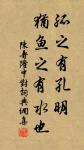 孤之有孔明
猶魚之有水也
陳壽隆中對詞典調集